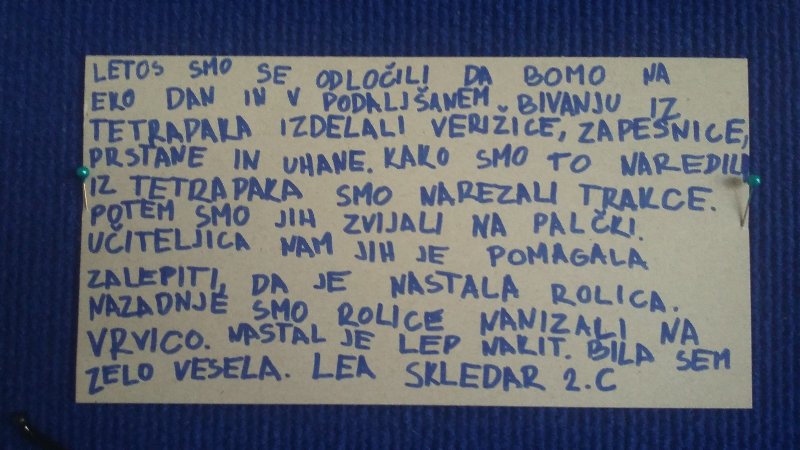 LETOS SMO SE ODLOČILI DA BOMO NA
EKO DAN IN V PODALJŠANEM BIVANJU IZ
TETRAPAKA IZDELALI VERIŽICE, ZAPESNICE,
PRSTANE IN UHANE. KAKO SMO TO NAREDILI
IZ TETRAPAKA SMO NAREZALI TRAKCE.
POTEM SMO JIH ZVIJALI NA PALČKI.
UČITELJICA NAM JIH JE POMAGALA
ZALEPITI, DA JE NASTALA ROLICA.
NAZADNJE SMO ROLICE NANIZALI NA
VRVICO. NASTAL JE LEP NAKIT. BILA SEM
ZELO VESELA. LEA SKLEDAR 2.C